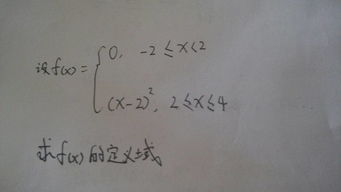 设f(x)={0, -2≤x<2
(x-2)², 2≤x≤4
求f(x)的定义域